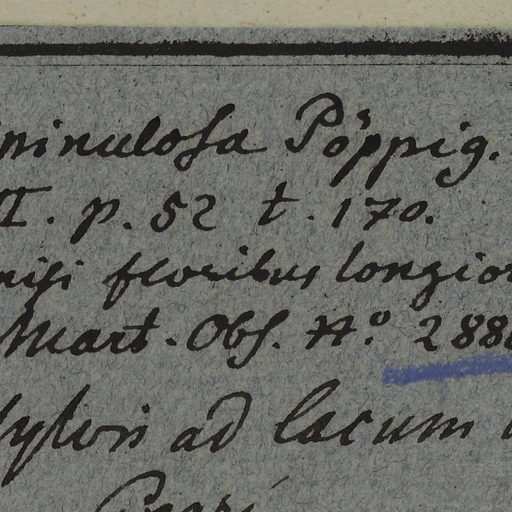 pinulosa Pöppig.
II. p. 52 t. 170.
nisi floribus longior
Mart. Obs. N.º 288
Sylvis ad lacum